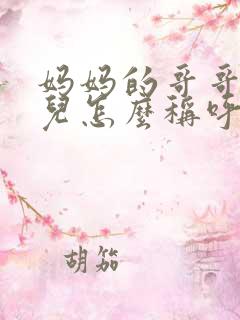 妈妈的哥哥
兒怎麼稱呼
胡笳